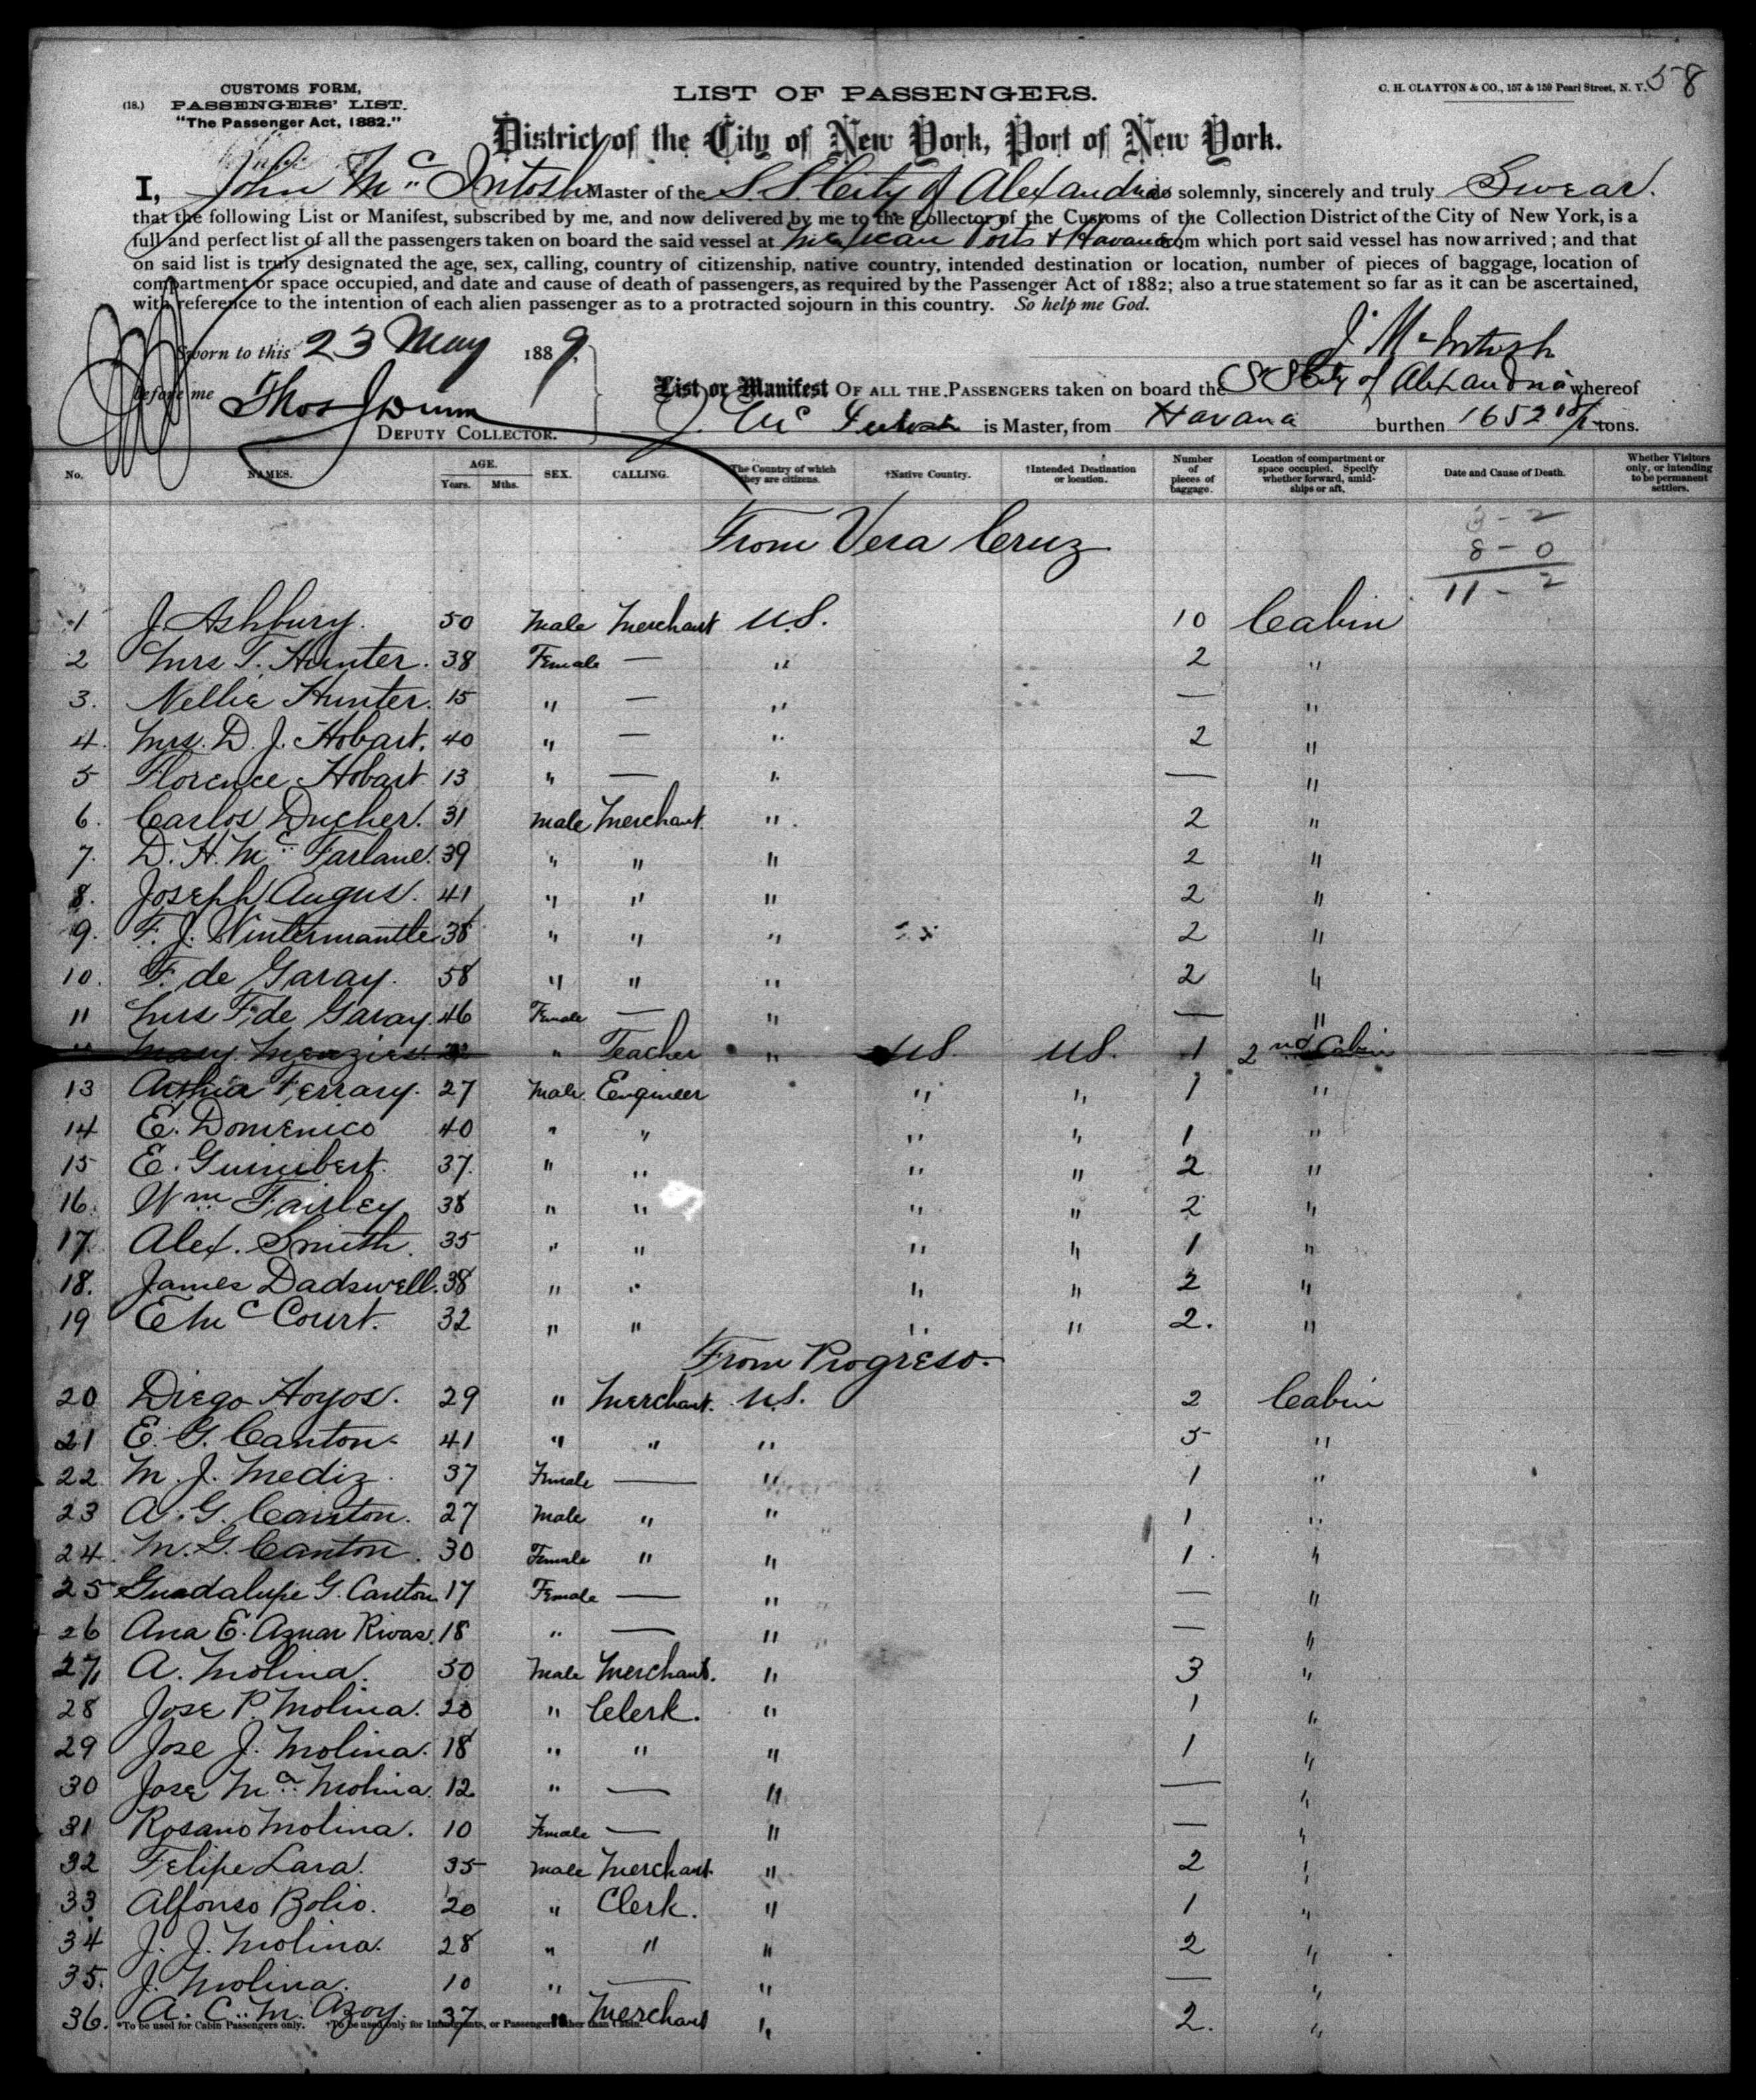 58
CUSTOMS FORM,
(18.) PASSENGERS' LIST.
"The Passenger Act, 1882."
LIST OF PASSENGERS.
C. H. CLAYTON & CO., 157 & 159 Pearl Street, N. Y.
District of the City of New York, Port of New York.
I, John Mc Intosh Master of the S. S. City of Alexandria do solemnly, sincerely and truly Swear.
that the following List or Manifest, subscribed by me, and now delivered by me to the Collector of the Customs of the Collection District of the City of New York, is a
full and perfect list of all the passengers taken on board the said vessel at Mexican Ports & Havana from which port said vessel has now arrived; and that
on said list is truly designated the age, sex, calling, country of citizenship, native country, intended destination or location, number of pieces of baggage, location of
compartment or space occupied, and date and cause of death of passengers, as required by the Passenger Act of 1882; also a true statement so far as it can be ascertained,
with reference to the intention of each alien passenger as to a protracted sojourn in this country. So help me God.
J. Mc Intosh
Sworn to this 23 May 1889,
before me Thos J Dunn
DEPUTY COLLECTOR.
List or Manifest OF ALL THE PASSENGERS taken on board the S S City of Alexandria whereof
J. Mc Intosh is Master, from Havana burthen 1652 tons.
No. NAMES. AGE. Years. Mths. SEX. CALLING. The Country of which they are citizens. †Native Country. †Intended Destination or location. Number of pieces of baggage. Location of compartment or space occupied. Specify whether forward, amidships or aft. Date and Cause of Death. Whether Visitors only, or intending to be permanent settlers.
From Vera Cruz
3 - 2
8 - 0
11 - 2
1 J. Ashbury. 50 Male Merchant U.S. 10 Cabin
2 Mrs T. Hunter. 38 Female — " 2 "
3. Nellie Hunter. 15 " — " — "
4. Mrs. D. J. Hobart. 40 " — " 2 "
5 Florence Hobart. 13 " — " — "
6. Carlos Ducher. 31 Male Merchant. " 2 "
7. D. H. Mc Farlane. 39 " " " 2 "
8. Joseph Angus. 41 " " " 2 "
9. F. J. Wintermantle 38 " " " 2 "
10. F. de Garay. 58 " " " 2 "
11 Mrs F. de Garay. 46 Female — " — "
Mary Menzies. " Teacher " U.S. U.S. 1 2nd Cabin
13 Ferrary. 27 Male. Engineer " " 1 "
14 E. Domenico 40 " " " " 1 "
15 E. Guimbert. 37. " " " " 2 "
16. Wm. Fairley 38 " " " " 2 "
17. Alex. Smith. 35 " " " " 1 "
18. James Dadswell. 38 " " " " 2 "
19 E Mc Court. 32 " " " " 2. "
From Progreso.
20 Diego Hoyos. 29 " Merchant. U.S. 2 Cabin
21 E. G. Canton. 41 " " " 5 "
22. M. J. Mediz. 37 Female — " 1 "
23 A. G. Canton. 27 Male " " 1 "
24. M. G. Canton. 30 Female " " 1 "
25 Guadalupe G. Canton 17 Female — " — "
26 Ana E. Aznar Rivas. 18 " — " — "
27, A. Molina. 50 Male Merchant. " 3 "
28 Jose P. Molina. 20 " Clerk. " 1 "
29 Jose J. Molina. 18 " " " 1 "
30 Jose Ma. Molina. 12 " — " — "
31 Rosario Molina. 10 Female — " — "
32 Felipe Lara. 35 Male Merchant. " 2 "
33 Alfonso Bolio. 20 " Clerk. " 1 "
34 J. J. Molina. 28 " " " 2 "
35. J. Molina. 10 " — " — "
36. A. C. M. Azoy. 37 " Merchant " 2. "
*To be used for Cabin Passengers only. †To be used only for Immigrants, or Passengers other than Cabin.